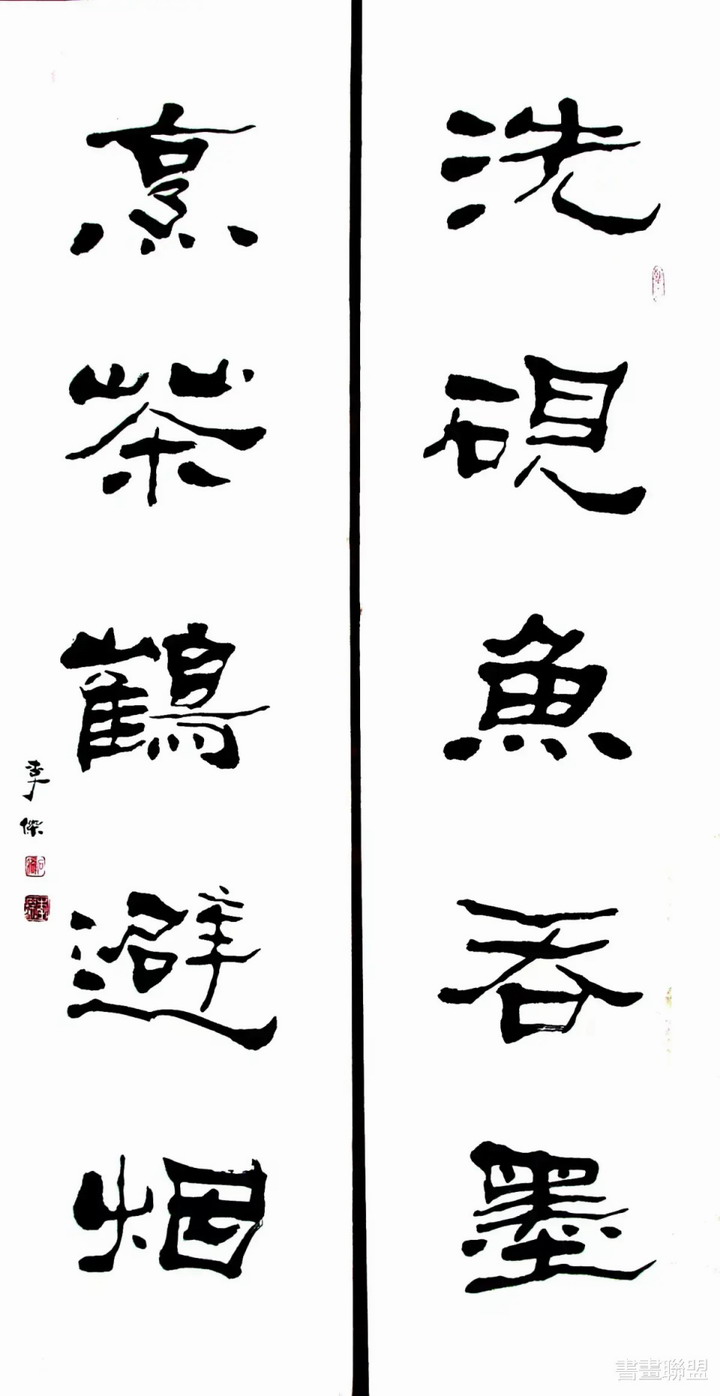 洗硯魚吞墨
烹茶鶴避烟
李傑
書畫聯盟